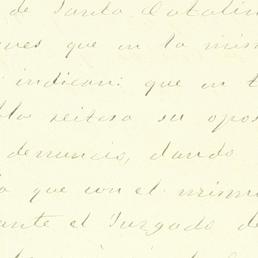 de Santa Catalin
ques que en la mism
indican: que en t
reitera su opos
denuncio, dando
que con el mismo
ante el Juzgado de